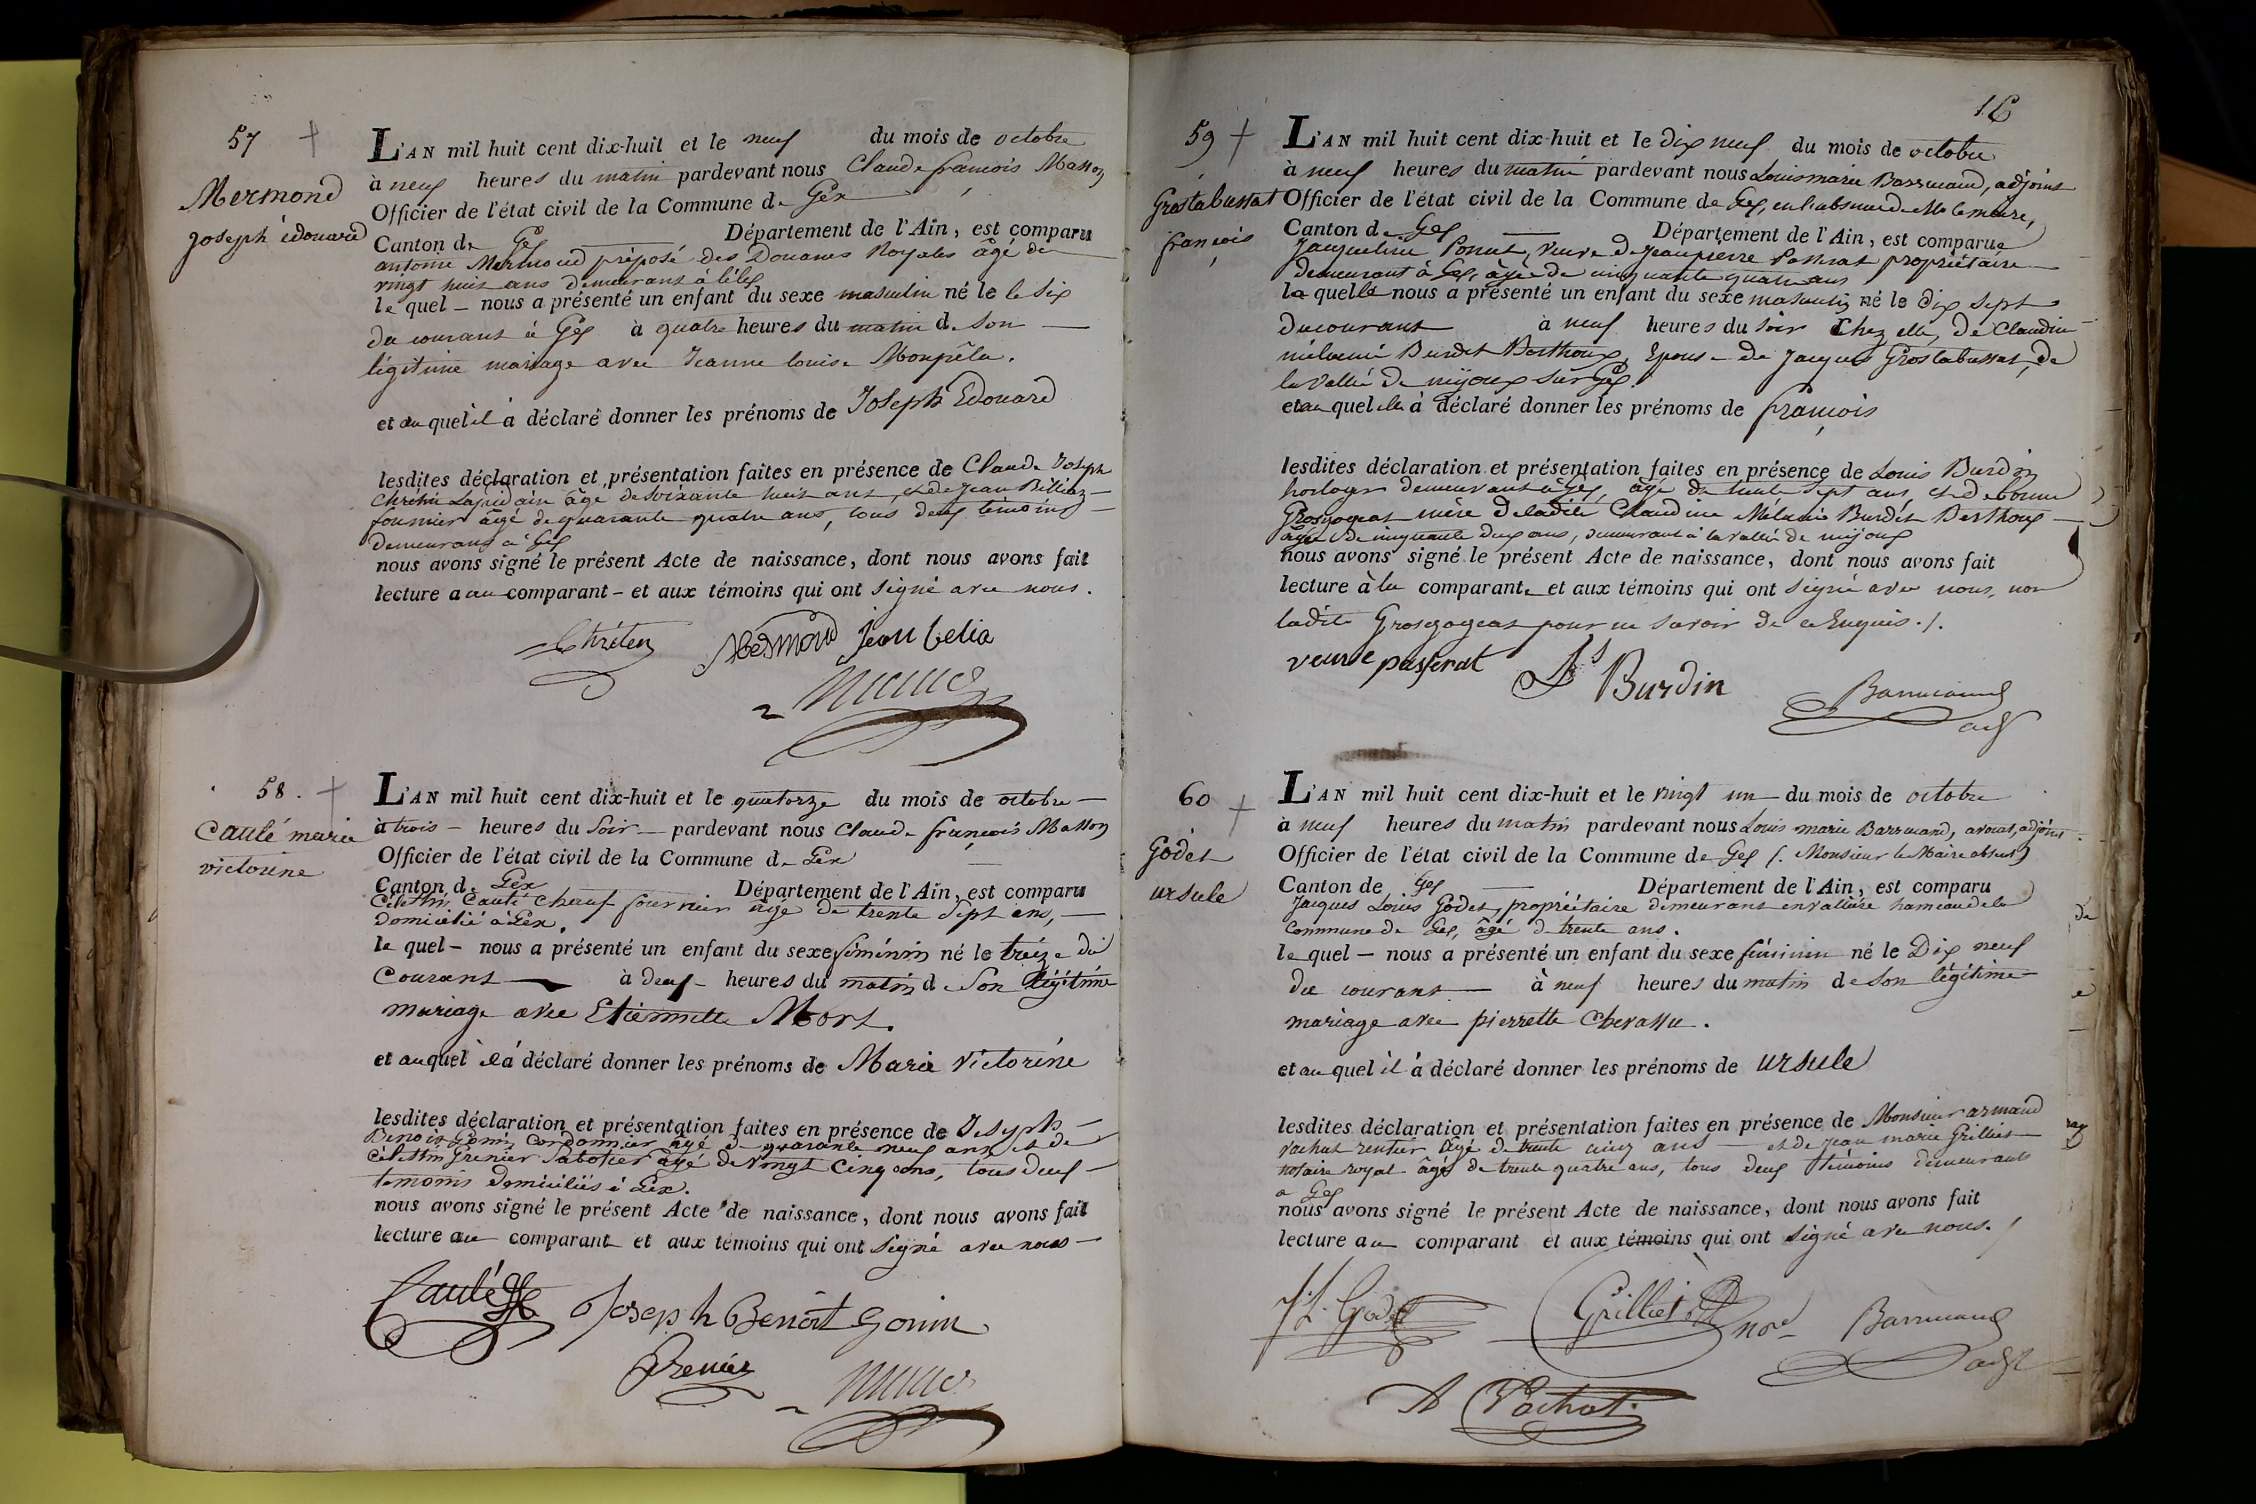 57
Mermond
joseph édouard
L'AN mil huit cent dix-huit et le neuf du mois de octobre
à neuf heures du matin pardevant nous Claude françois Masson
Officier de l'état civil de la Commune de Gex
Canton de Gex Département de l'Ain, est comparu
antoine Mermond préposé des Douanes Royales âgé de
vingt huit ans demeurant à
le quel nous a présenté un enfant du sexe masculin né le le six
du courant à Gex à quatre heures du matin de son
légitime mariage avec Jeanne louise
et au quel il a déclaré donner les prénoms de Joseph Edouard
lesdites déclaration et présentation faites en présence de Claude Joseph
Chrétien Lapidaire âgé de soixante huit ans, et de Jean
fournier âgé de quarante quatre ans, tous deux témoins
demeurans à Gex
nous avons signé le présent Acte de naissance, dont nous avons fait
lecture a au comparant et aux témoins qui ont signé avec nous.
Chrétien Mermond Jean
58.
Caulé marie
victorine
L'AN mil huit cent dix-huit et le quatorze du mois de octobre
à trois heures du Soir pardevant nous Claude françois Masson
Officier de l'état civil de la Commune de Gex
Canton de Gex Département de l'Ain, est comparu
Célestin Caulé chauf fournier âgé de trente Sept ans,
domicilié à Gex.
le quel nous a présenté un enfant du sexe féminin né le treize du
Courant à deux heures du matin de Son légitime
mariage avec Etiennette Mort.
et au quel il a déclaré donner les prénoms de Marie Victorine
lesdites déclaration et présentation faites en présence de Joseph
Benoit Gonin, Cordonnier âgé de quarante neuf ans et de
Célestin Grenier Sabotier âgé de Vingt Cinq ans, tous deux
temoins domiciliés à Gex.
nous avons signé le présent Acte de naissance, dont nous avons fait
lecture au comparant et aux témoins qui ont Signé avec nous
Caulé Joseph Benoit Gonin
Grenier
59
Grostabussat
françois
L'AN mil huit cent dix-huit et le dix neuf du mois de octobre
à neuf heures du matin pardevant nous Louis marie Barruand, adjoint
Officier de l'état civil de la Commune de Gex, en l'absence de Mr le maire,
Canton de Gex Département de l'Ain, est comparue
Jacqueline Ponnet, Veuve de Jean pierre Passerat propriétaire
demeurant à Gex, âgée de cinquante quatre ans
la quelle nous a présenté un enfant du sexe masculin né le dix sept
du courant à neuf heures du soir Chez elle, de Claudine
mélanie Burdet Berthoux, Epouse de Jacques Grostabussat, de
la vallée de mijoux sur Gex.
et au quel elle a déclaré donner les prénoms de françois
lesdites déclaration et présentation faites en présence de Louis Burdin
horloger demeurant à Gex, âgé de trente sept ans, et de
Grosgogeat mère de ladite Claudine Mélanie Burdet Berthoux
âgée de cinquante deux ans, demeurant à la vallée de mijoux
nous avons signé le présent Acte de naissance, dont nous avons fait
lecture à la comparante et aux témoins qui ont signé avec nous, non
ladite Grosgogeat pour ne savoir de ce Enquis ./.
veuve passerat Ls Burdin Barruand
adj
60
Godet
ursule
L'AN mil huit cent dix-huit et le vingt un du mois de octobre
à neuf heures du matin pardevant nous Louis marie Barruand, avocat, adjoint
Officier de l'état civil de la Commune de Gex (. Monsieur le Maire absent)
Canton de Gex Département de l'Ain, est comparu
Jacques Louis Godet, propriétaire demeurant hameau de la
Commune de Gex, âgé de trente ans.
le quel nous a présenté un enfant du sexe féminin né le Dix neuf
du courant à neuf heures du matin de son légitime
mariage avec pierrette Chevassu.
et au quel il a déclaré donner les prénoms de ursule
lesdites déclaration et présentation faites en présence de Monsieur armand
vachat rentier âgé de trente cinq ans et de Jean marie Grilliet
notaire royal âgé de trente quatre ans, tous deux témoins demeurants
a Gex
nous avons signé le présent Acte de naissance, dont nous avons fait
lecture au comparant et aux témoins qui ont signé avec nous.
J. L. Godet Grilliet nore Barruand
adjt
A Vachat.